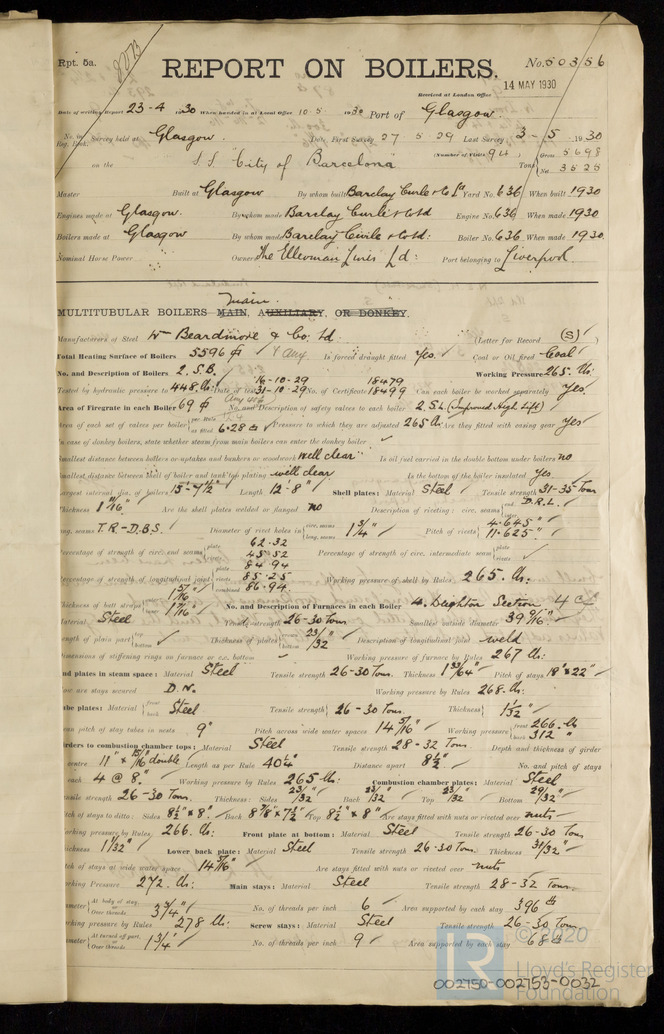 Rpt. 5a.
REPORT ON BOILERS.
No. 50356
Received at London Office 14 MAY 1930
Date of writing Report 23-4 1930 When handed in at Local Office 10.5. 1930 Port of Glasgow.
No. in Reg. Book. Survey held at Glasgow. Date, First Survey 27 5 29 Last Survey 3-5 1930
on the S.S. "City of Barcelona" (Number of Visits 94) Tons Gross 5698 Net 3525
Master Built at Glasgow By whom built Barclay Curle & Co Ld Yard No. 636 When built 1930
Engines made at Glasgow. By whom made Barclay Curle & Co Ltd Engine No. 636 When made 1930
Boilers made at Glasgow By whom made Barclay Curle & Co Ltd: Boiler No. 636 When made 1930.
Nominal Horse Power Owners The Ellerman Lines Ld: Port belonging to Liverpool.
main.
MULTITUBULAR BOILERS MAIN, AUXILIARY, OR DONKEY.
Manufacturers of Steel Wm Beardmore & Co. Ltd. (Letter for Record (S))
Total Heating Surface of Boilers 5596 Is forced draught fitted Yes. Coal or Oil fired Coal
No. and Description of Boilers 2. S.B. Working Pressure 265. Lbs.
Tested by hydraulic pressure to 448 Lbs: Date of test 16-10-29 31-10-29 No. of Certificate 18479 18499 Can each boiler be worked separately Yes.
Area of Firegrate in each Boiler 69 No. and Description of safety valves to each boiler 2. S.L. (Improved High Lift)
Area of each set of valves per boiler per Rule as fitted 6.28 Pressure to which they are adjusted 265 Lbs Are they fitted with easing gear Yes
In case of donkey boilers, state whether steam from main boilers can enter the donkey boiler
Smallest distance between boilers or uptakes and bunkers or woodwork well clear Is oil fuel carried in the double bottom under boilers no
Smallest distance between shell of boiler and tank top plating well clear Is the bottom of the boiler insulated yes
Largest internal dia. of boilers 15'-7 1/2" Length 12'-8" Shell plates: Material Steel Tensile strength 31-35 Tons
Thickness 1 11/16" Are the shell plates welded or flanged no Description of riveting: circ. seams end D.R.L. inter.
long. seams T.R.-D.B.S. Diameter of rivet holes in circ. seams long. seams 1 3/4" Pitch of rivets 4.645" 11.625"
Percentage of strength of circ. end seams plate 62.32 rivets 45.52 Percentage of strength of circ. intermediate seam plate rivets
Percentage of strength of longitudinal joint plate 84.94 rivets 85.25 combined 86.94 Working pressure of shell by Rules 265. Lbs:
Thickness of butt straps outer inner 1 7/16" No. and Description of Furnaces in each Boiler 4. Deighton Section 4 cf
Material Steel Tensile strength 26-30 Tons Smallest outside diameter 39 9/16"
Length of plain part top bottom Thickness of plates crown bottom 23/32" Description of longitudinal joint weld
Dimensions of stiffening rings on furnace or c.c. bottom Working pressure of furnace by Rules 267 Lbs:
End plates in steam space: Material Steel Tensile strength 26-30 Tons. Thickness 1 33/64" Pitch of stays 18" x 22"
How are stays secured D.N. Working pressure by Rules 268. Lbs:
Tube plates: Material front back Steel Tensile strength 26-30 Tons. Thickness 1/32"
Mean pitch of stay tubes in nests 9" Pitch across wide water spaces 14 5/16" Working pressure front 266. Lbs back 312 "
Girders to combustion chamber tops: Material Steel Tensile strength 28-32 Tons. Depth and thickness of girder
at centre 11" x 15/16" double Length as per Rule 40 1/4" Distance apart 8 1/2" No. and pitch of stays
in each 4 @ 8." Working pressure by Rules 265 Lbs: Combustion chamber plates: Material Steel
Tensile strength 26-30 Tons. Thickness: Sides 23/32" Back 23/32" Top 23/32" Bottom 29/32"
Pitch of stays to ditto: Sides 8 1/2" x 8" Back 8 7/8" x 7 1/2" Top 8 1/2" x 8" Are stays fitted with nuts or riveted over nuts
Working pressure by Rules 266. Lbs: Front plate at bottom: Material Steel Tensile strength 26-30 Tons
Thickness 1 1/32" Lower back plate: Material Steel Tensile strength 26-30 Tons. Thickness 31/32"
Pitch of stays at wide water space 14 5/16" Are stays fitted with nuts or riveted over nuts
Working Pressure 272. Lbs: Main stays: Material Steel Tensile strength 28-32 Tons.
Diameter At body of stay, or Over threads 3 3/4" No. of threads per inch 6 Area supported by each stay 396
Working pressure by Rules 278 Lbs: Screw stays: Material Steel Tensile strength 26-30 Tons
Diameter At turned off part, or Over threads 1 3/4" No. of threads per inch 9 Area supported by each stay 68
© 2020
Lloyd's Register
Foundation
002750-002753-0032